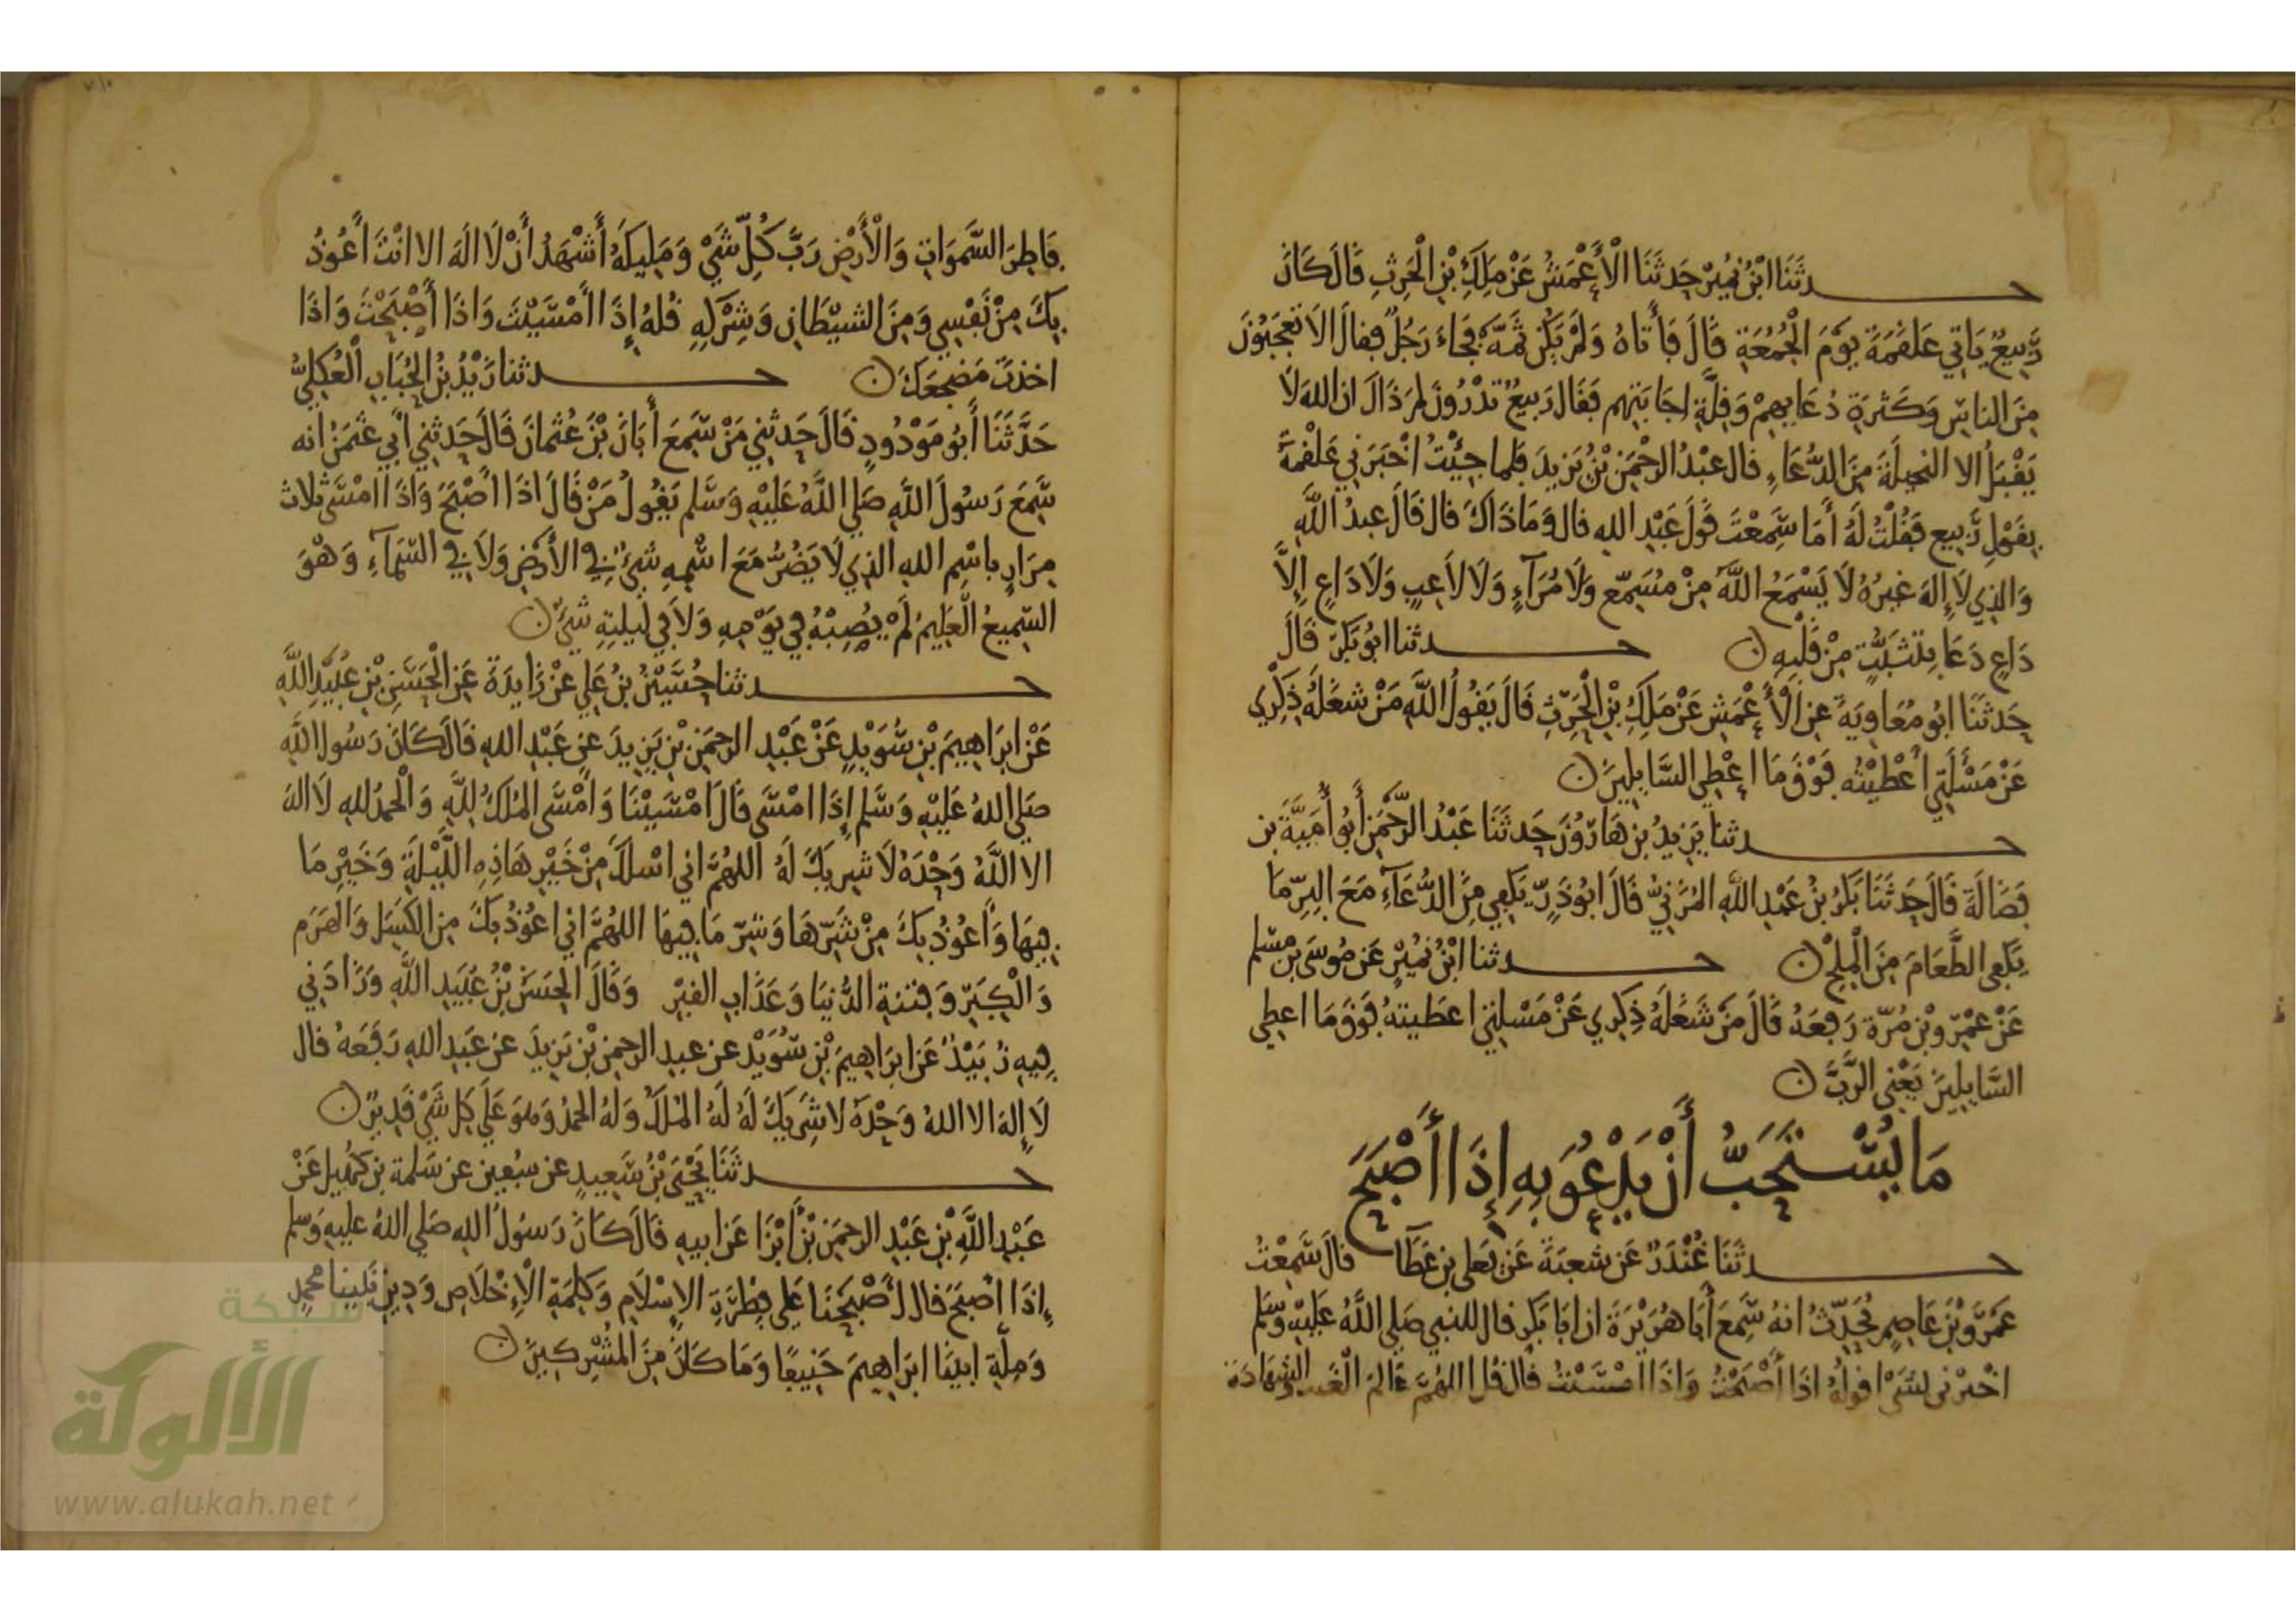 حدثنا ابن نمير حدثنا الأعمش عن ملك بن الحرث قال كان
ربيع ياتي علقمة يوم الجمعة قال فأتاه ولم يكن ثمه فجاء رجل فقال الا تعجبون
من الناس وكثرة دعايهم وقلة اجابتهم فقال ربيع تدرون لم ذاك ان الله لا
يقبل الا النخيلة من الدعاء قال عبد الرحمن بن يزيد فلما جيت اخبرني علقمة
بقول ربيع فقلت له أما سمعت قول عبد الله قال وما ذاك قال قال عبد الله
والذي لا إله غيره لا يسمع الله من مسمع ولا مرآء ولا لاعب ولا داع إلا
داع دعا بتثبت من قلبه ن حدثنا ابو بكر قال
حدثنا ابو معاوية عن الأعمش عن ملك بن الحرث قال يقول الله من شغله ذكري
عن مسألتي أعطيته فوق ما اعطي السايلين ن
حدثنا يزيد بن هارون حدثنا عبد الرحمن أبو أمية بن
فضالة قال حدثنا بكر بن عبد الله المزني قال ابو ذر يكفي من الدعاء مع البر ما
يكفي الطعام من الملح ن حدثنا ابن نمير عن موسى بن مسلم
عن عمرو بن مرة رفعه قال من شغله ذكري عن مسلتي اعطيته فوق ما اعطي
السايلين يعني الرب ن
ما يستحب أن يدعو به إذا أصبح
حدثنا غندر عن شعبة عن يعلى بن عطا قال سمعت
عمرو بن عاصم يحدث انه سمع أبا هريرة ان ابا بكر قال للنبي صلى الله عليه وسلم
اخبرني بشي اقوله اذا أصبحت واذا امسيت قال قل اللهم عالم الغيب والشهادة
فاطر السموات والأرض رب كل شي ومليكه أشهد أن لا اله الا انت أعوذ
بك من نفسي ومن الشيطان وشركه قله إذا امسيت واذا أصبحت واذا
اخذت مضجعك ن حدثنا زيد بن الحباب العكلي
حدثنا أبو مودود قال حدثني من سمع أبان بن عثمان قال حدثني أبي عثمن انه
سمع رسول الله صلى الله عليه وسلم يقول من قال اذا أصبح واذا امسى ثلاث
مرار باسم الله الذي لا يضر مع اسمه شي في الأرض ولا في السمآء وهو
السميع العليم لم يصبه في يومه ولا في ليلته شي ن
حدثنا حسين بن علي عن زايدة عن الحسن بن عبيد الله
عن ابراهيم بن سويد عن عبد الرحمن بن يزيد عن عبد الله قال كان رسول الله
صلى الله عليه وسلم إذا امسى قال امسينا وامسى الملك لله والحمد لله لا اله
الا الله وحده لا شريك له اللهم اني اسلك من خير هاذه الليلة وخير ما
فيها وأعوذ بك من شرها وشر ما فيها اللهم اني اعوذ بك من الكسل والهرم
والكبر وفتنة الدنيا وعذاب القبر وقال الحسن بن عبيد الله وزادني
فيه زبيد عن ابراهيم بن سويد عن عبد الرحمن بن يزيد عن عبد الله رفعه قال
لا إله الا الله وحده لا شريك له له الملك وله الحمد وهو على كل شي قدير ن
حدثنا يحيى بن سعيد عن سفين عن سلمة بن كهيل عن
عبد الله بن عبد الرحمن بن أبزا عن ابيه قال كان رسول الله صلى الله عليه وسلم
إذا اصبح قال أصبحنا على فطرة الإسلام وكلمة الإخلاص ودين نبينا محمد
وملة ابينا ابراهيم حنيفا وما كان من المشركين ن
شبكة
الألوكة
www.alukah.net